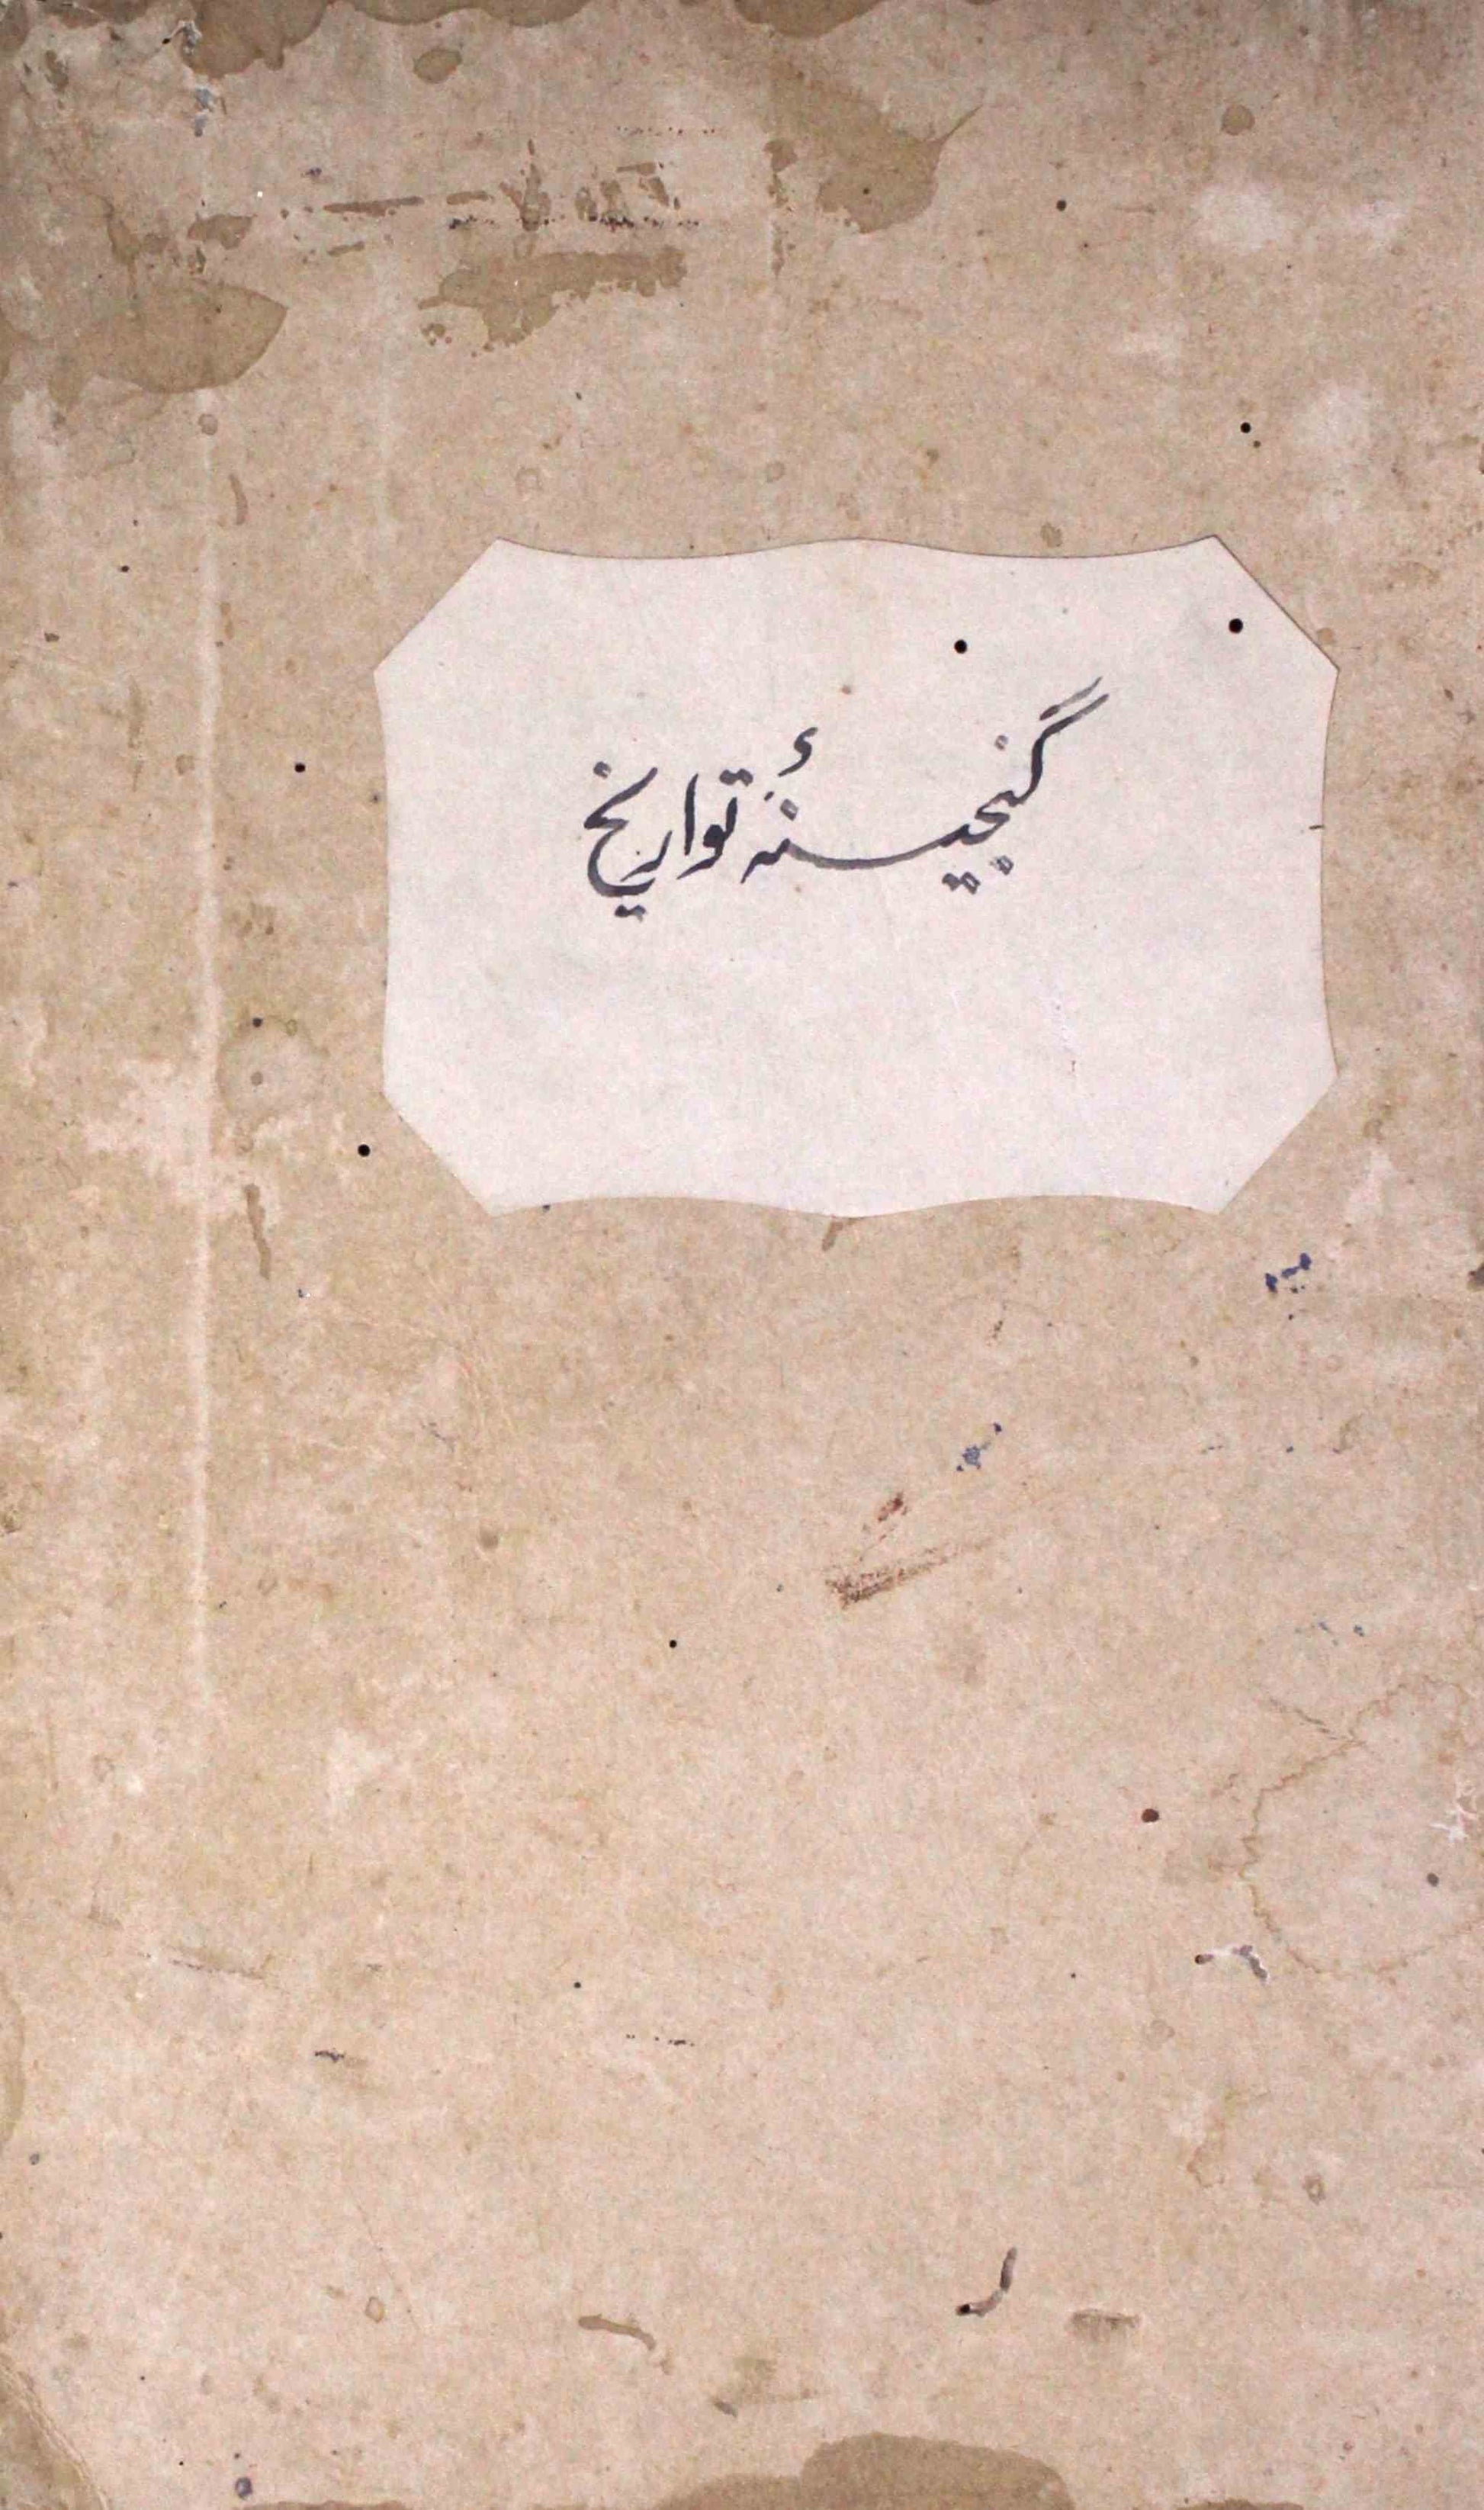 گنجینۂ تواریخ